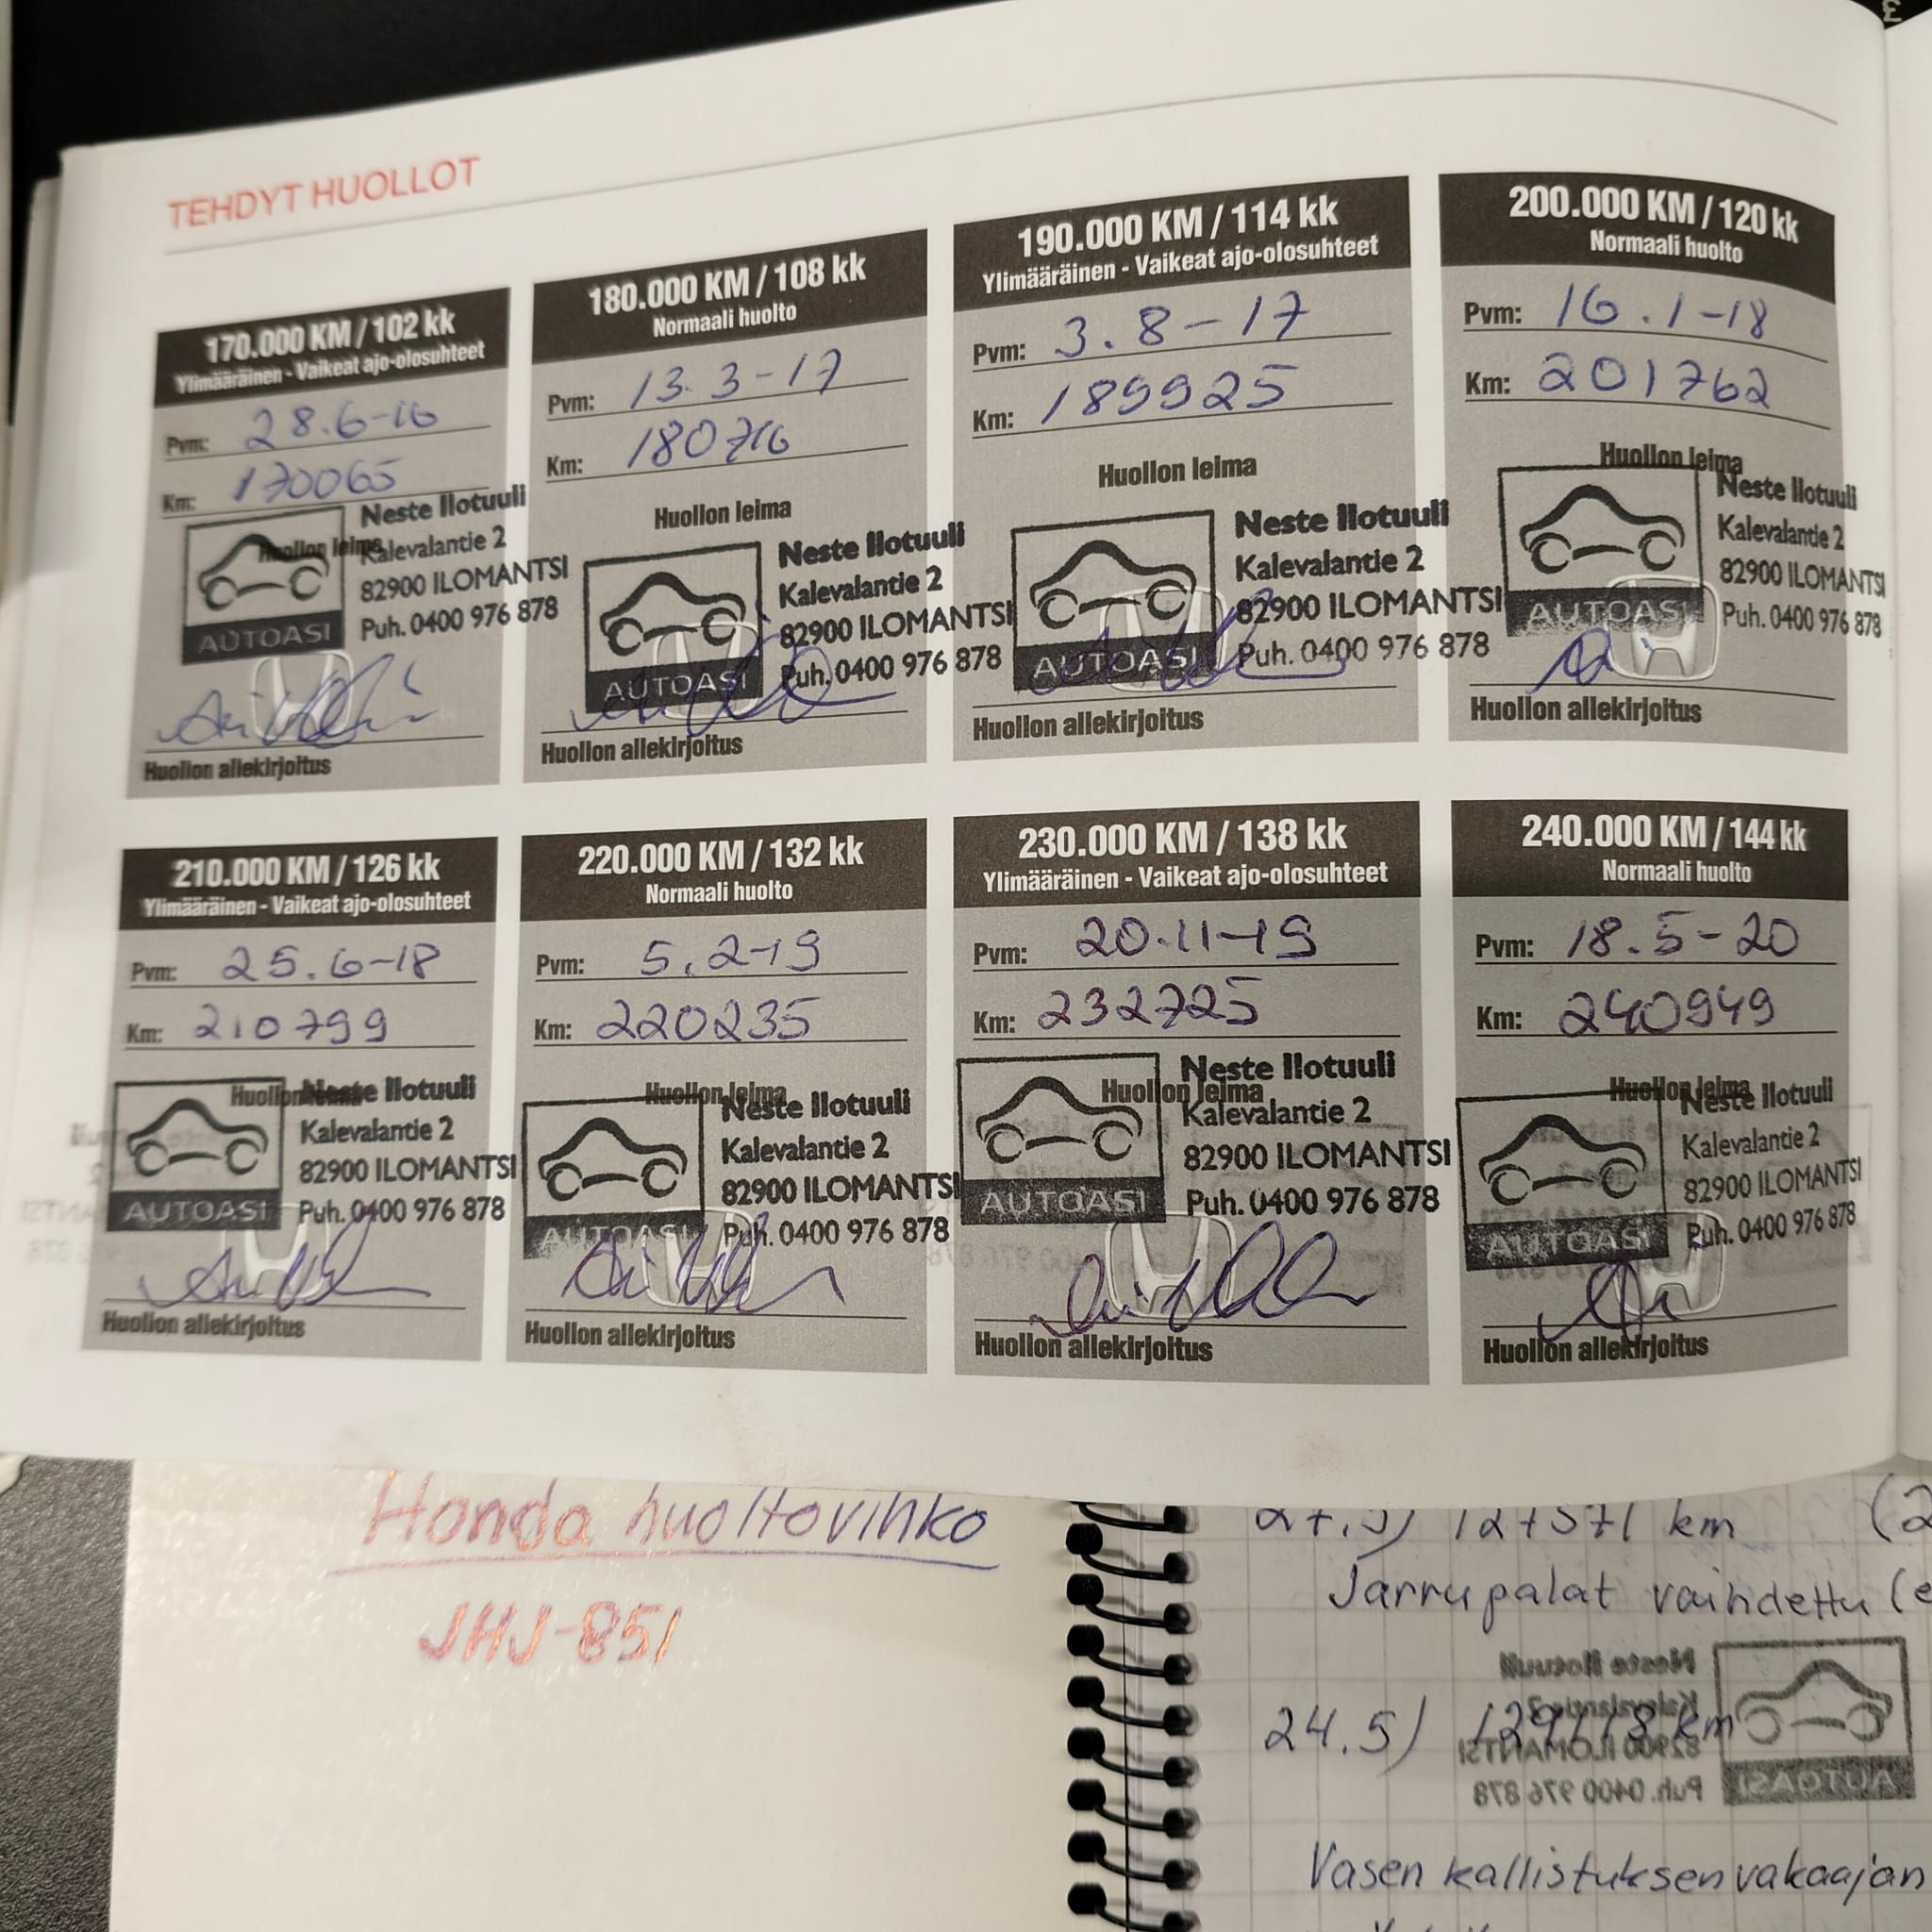 TEHDYT HUOLLOT
170.000 KM / 102 kk
Ylimääräinen - Vaikeat ajo-olosuhteet
Pvm: 28.6-16
Km: 170065
Huollon leima
Neste Ilotuuli
Kalevalantie 2
82900 ILOMANTSI
Puh. 0400 976 878
AUTOASI
Huollon allekirjoitus
180.000 KM / 108 kk
Normaali huolto
Pvm: 13.3-17
Km: 180716
Huollon leima
Neste Ilotuuli
Kalevalantie 2
82900 ILOMANTSI
Puh. 0400 976 878
AUTOASI
Huollon allekirjoitus
190.000 KM / 114 kk
Ylimääräinen - Vaikeat ajo-olosuhteet
Pvm: 3.8-17
Km: 189925
Huollon leima
Neste Ilotuuli
Kalevalantie 2
82900 ILOMANTSI
Puh. 0400 976 878
AUTOASI
Huollon allekirjoitus
200.000 KM / 120 kk
Normaali huolto
Pvm: 16.1-18
Km: 201762
Huollon leima
Neste Ilotuuli
Kalevalantie 2
82900 ILOMANTSI
Puh. 0400 976 878
AUTOASI
Huollon allekirjoitus
210.000 KM / 126 kk
Ylimääräinen - Vaikeat ajo-olosuhteet
Pvm: 25.6-18
Km: 210799
Huollon leima
Neste Ilotuuli
Kalevalantie 2
82900 ILOMANTSI
Puh. 0400 976 878
AUTOASI
Huollon allekirjoitus
220.000 KM / 132 kk
Normaali huolto
Pvm: 5.2-19
Km: 220235
Huollon leima
Neste Ilotuuli
Kalevalantie 2
82900 ILOMANTSI
Puh. 0400 976 878
AUTOASI
Huollon allekirjoitus
230.000 KM / 138 kk
Ylimääräinen - Vaikeat ajo-olosuhteet
Pvm: 20.11-19
Km: 232725
Huollon leima
Neste Ilotuuli
Kalevalantie 2
82900 ILOMANTSI
Puh. 0400 976 878
AUTOASI
Huollon allekirjoitus
240.000 KM / 144 kk
Normaali huolto
Pvm: 18.5-20
Km: 240949
Huollon leima
Neste Ilotuuli
Kalevalantie 2
82900 ILOMANTSI
Puh. 0400 976 878
AUTOASI
Huollon allekirjoitus
Honda huoltovihko
JHJ-851
km
Jarrupalat vaihdettu
Neste Ilotuuli
Kalevalantie 2
24.5) 129118 km
82900 ILOMANTSI
Puh. 0400 976 878
AUTOASI
Vasen kallistuksenvakaajan